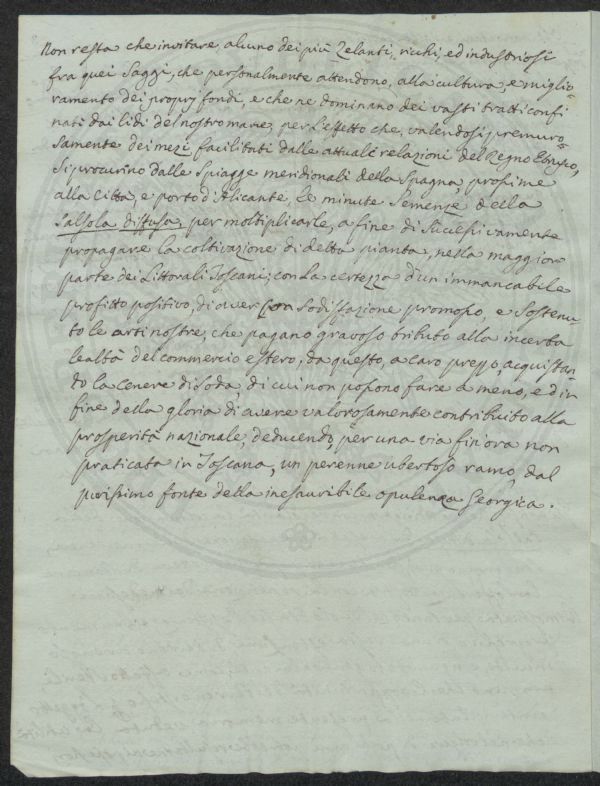 Non resta che invitare alcuno dei più Zelanti, richi, ed industriosi
fra quei Saggi, che personalmente attendono, alla cultura, e miglio=
ramento dei proprj fondi, e che ne dominano dei vasti tratti confi
nati dai lidi del nostro mare, per l'effetto che, valendosi, premuro=
samente dei mezi, facilitati dalle attuali relazioni del Regno Etrusco,
si procurino dalle Spiagge meridionali della Spagna, prossime
alla Città, e porto d'Alicante, le minute Semenze della
Salsola diffusa, per moltiplicarle, a fine di Sucessivamente
propagare la coltivazione di detta pianta, nella maggior
parte dei Littorali Toscani; con la certezza d'un immancabile
profitto positivo, di aver con Sodisfazione promosso, e Sostenu=
to le arti nostre, che pagano gravoso tributo alla incerta
lealtà del commercio estero, da questo, a caro prezzo, acquistan=
do la cenere di Soda, di cui non possono fare a meno, ed in
fine della gloria di avere valorosamente contribuito alla
prosperità nazionale, deducendo, per una via fin'ora non
praticata in Toscana, un perenne ubertoso ramo, dal
purissimo fonte della inesauribile opulenza Georgica.